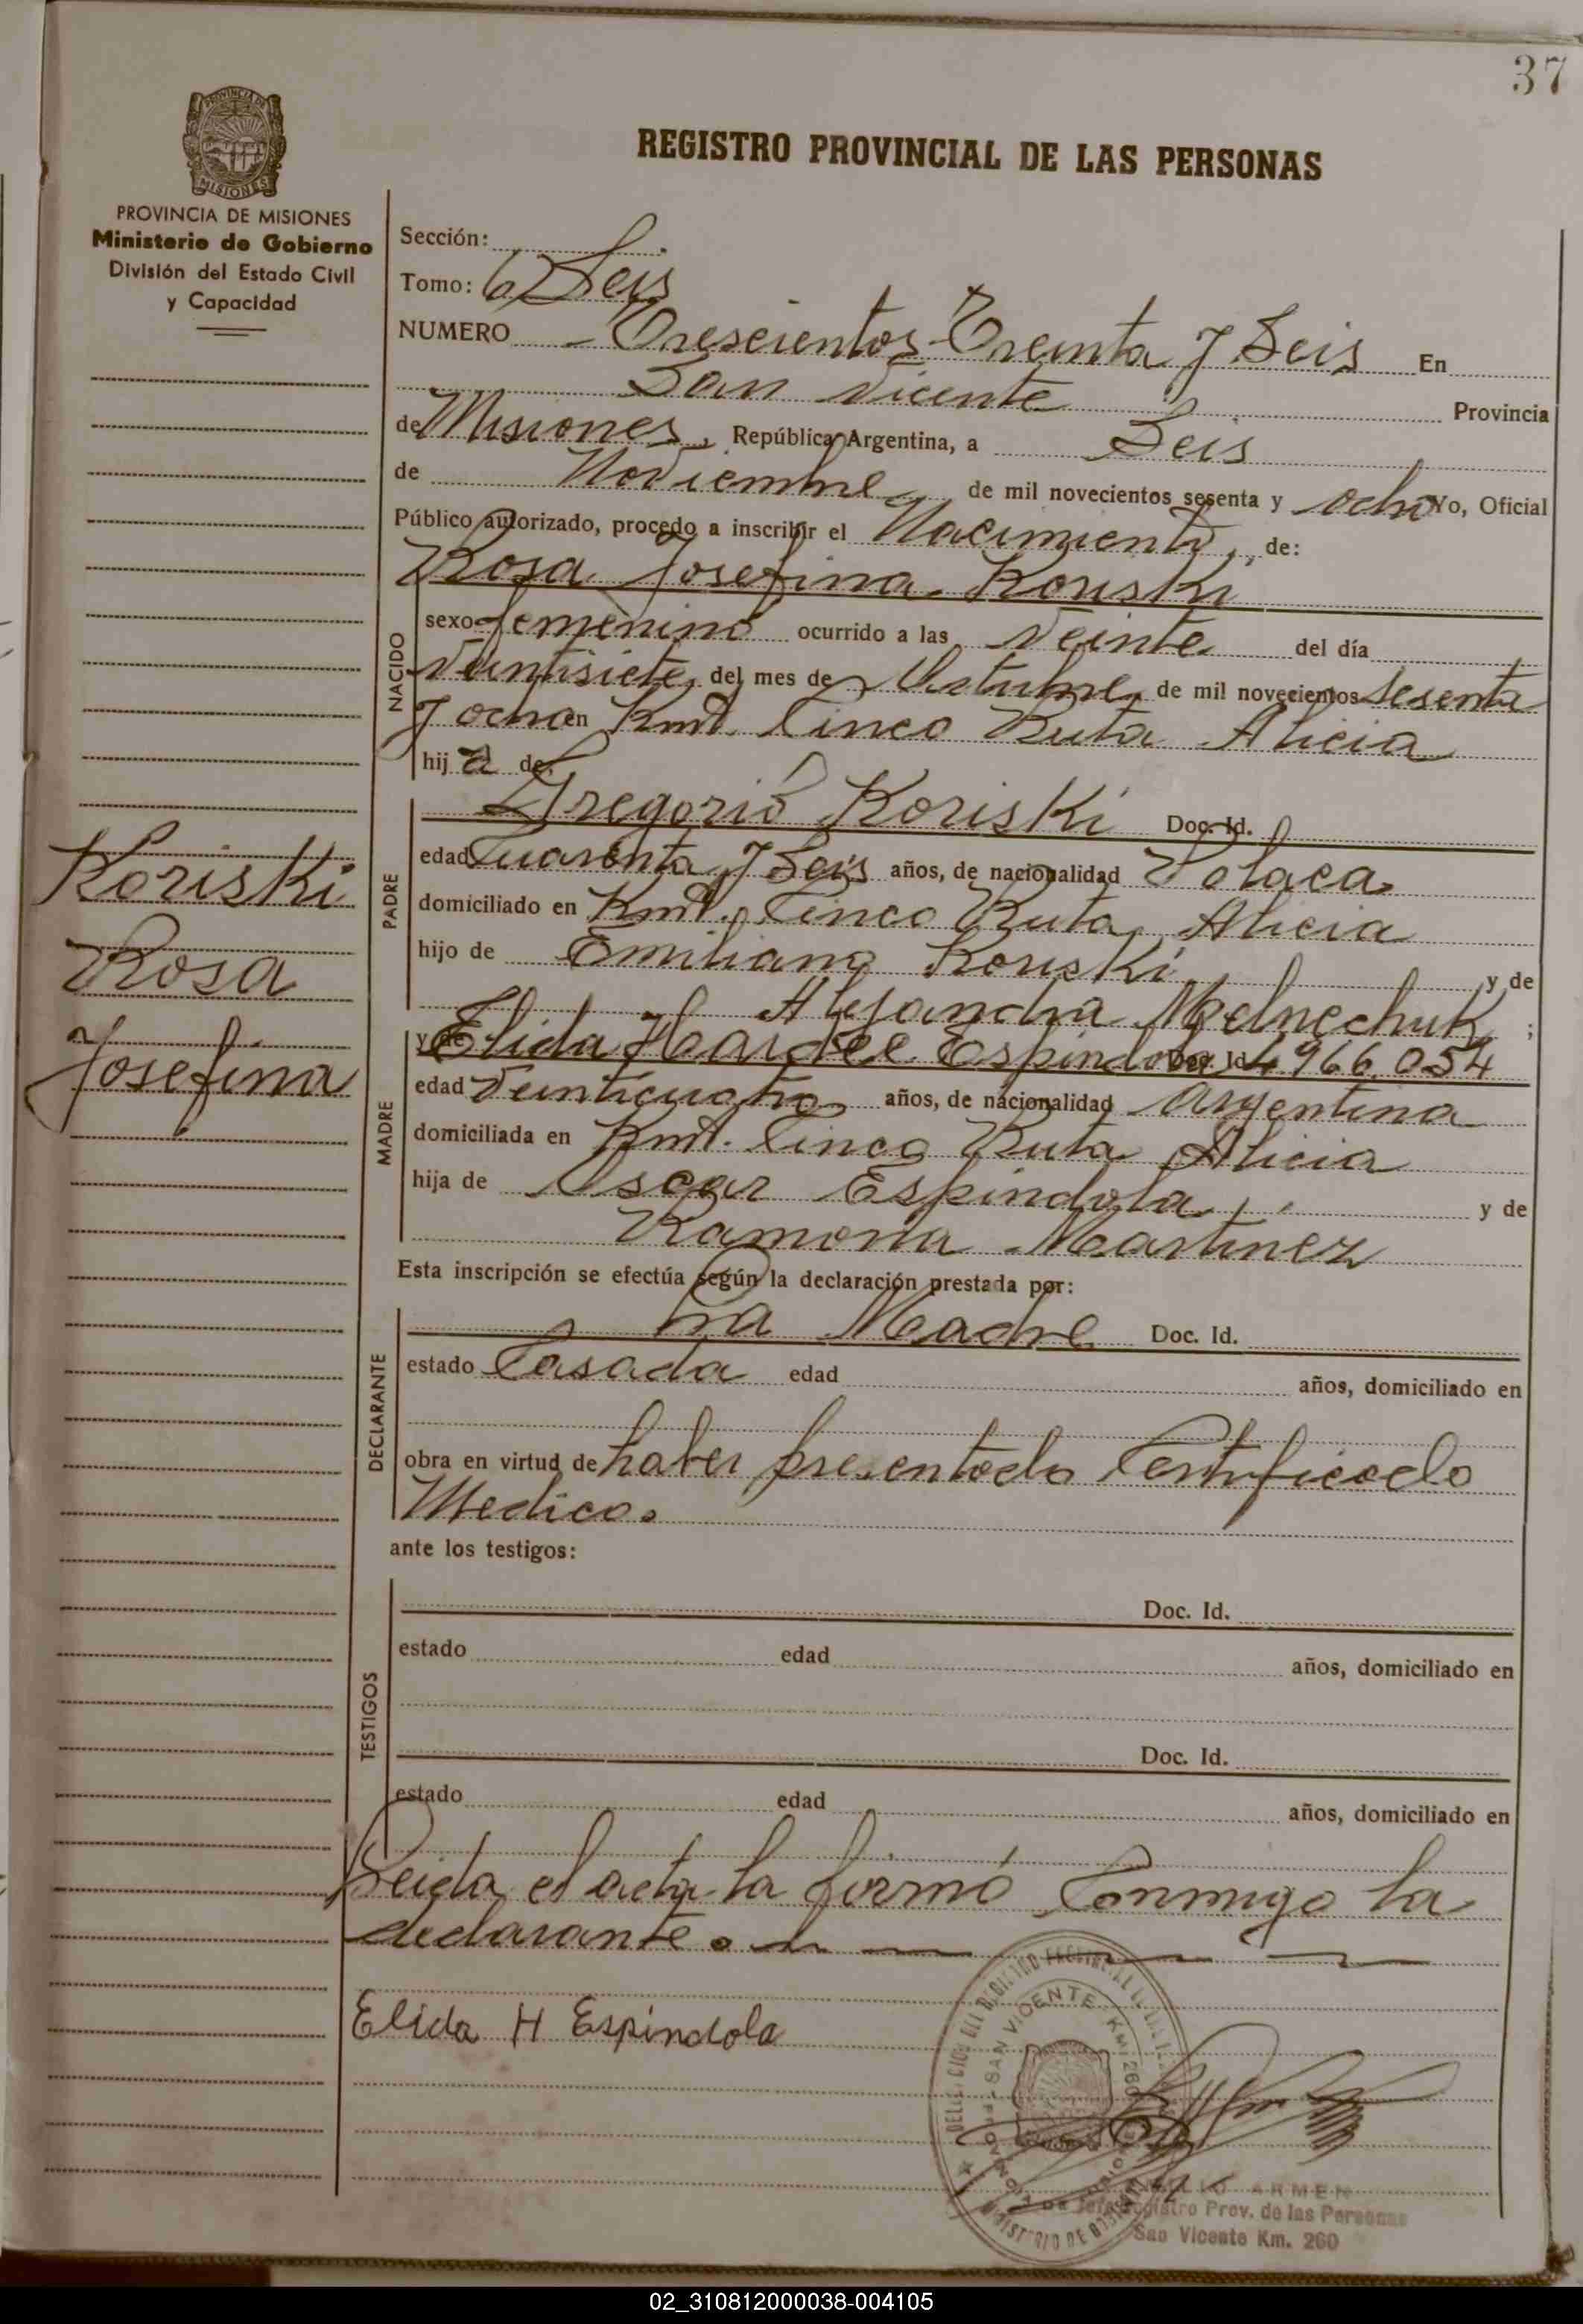 37
REGISTRO PROVINCIAL DE LAS PERSONAS
PROVINCIA DE MISIONES
MISIONES
PROVINCIA DE MISIONES
Ministerio de Gobierno
División del Estado Civil
y Capacidad
Sección:
Tomo: 6 Seis
NUMERO Trescientos Treinta y Seis En
San Vicente Provincia
de Misiones, República Argentina, a Seis
de Noviembre de mil novecientos sesenta y ocho Yo, Oficial
Público autorizado, procedo a inscribir el Nacimiento, de:
Rosa Josefina Koriski
NACIDO
sexo femenino ocurrido a las Veinte del día
Veintisiete del mes de Octubre de mil novecientos Sesenta
y ocho en Kmt. Cinco Ruta Alicia
hij a de
PADRE
Gregorio Koriski Doc. Id.
edad Cuarenta y Seis años, de nacionalidad Polaca
domiciliado en Kmt. Cinco Ruta Alicia
hijo de Emiliano Koriski y de
Alejandra Melnechuk ;
MADRE
y de Elida Haidee Espindola Doc. Id. 4966.054
edad Veinticuatro años, de nacionalidad Argentina
domiciliada en Kmt. Cinco Ruta Alicia
hija de Oscar Espindola y de
Ramona Martinez
Koriski
Rosa
Josefina
Esta inscripción se efectúa según la declaración prestada por:
DECLARANTE
La Madre Doc. Id.
estado Casada edad años, domiciliado en
obra en virtud de haber presentado Certificado
Medico.
ante los testigos:
TESTIGOS
Doc. Id.
estado edad años, domiciliado en
Doc. Id.
estado edad años, domiciliado en
Leida el acta la firmó Conmigo la
declarante.
Elida H Espindola
SAN VICENTE KM. 260
MINISTERIO DE
ARMEN
Jefe Registro Prov. de las Personas
San Vicente Km. 260
02_310812000038-004105